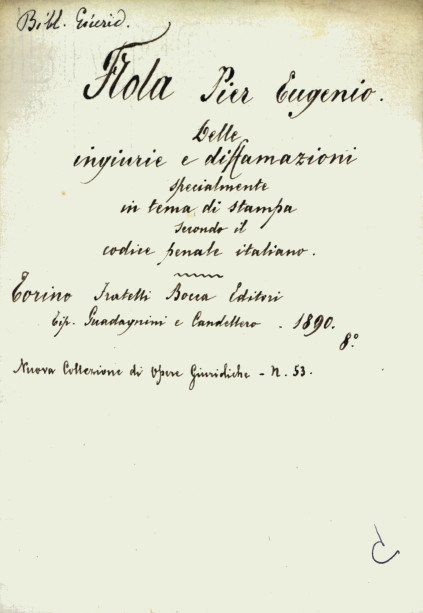 Bibl. Giurid.
Flola Pier Eugenio.
Delle
ingiurie e diffamazioni
specialmente
in tema di stampa
secondo il
codice penale italiano.
Torino Fratelli Bocca Editori
Tip. Guadagnini e Candellero. 1890.
8º
Nuova Collezione di Opere Giuridiche - N. 53.